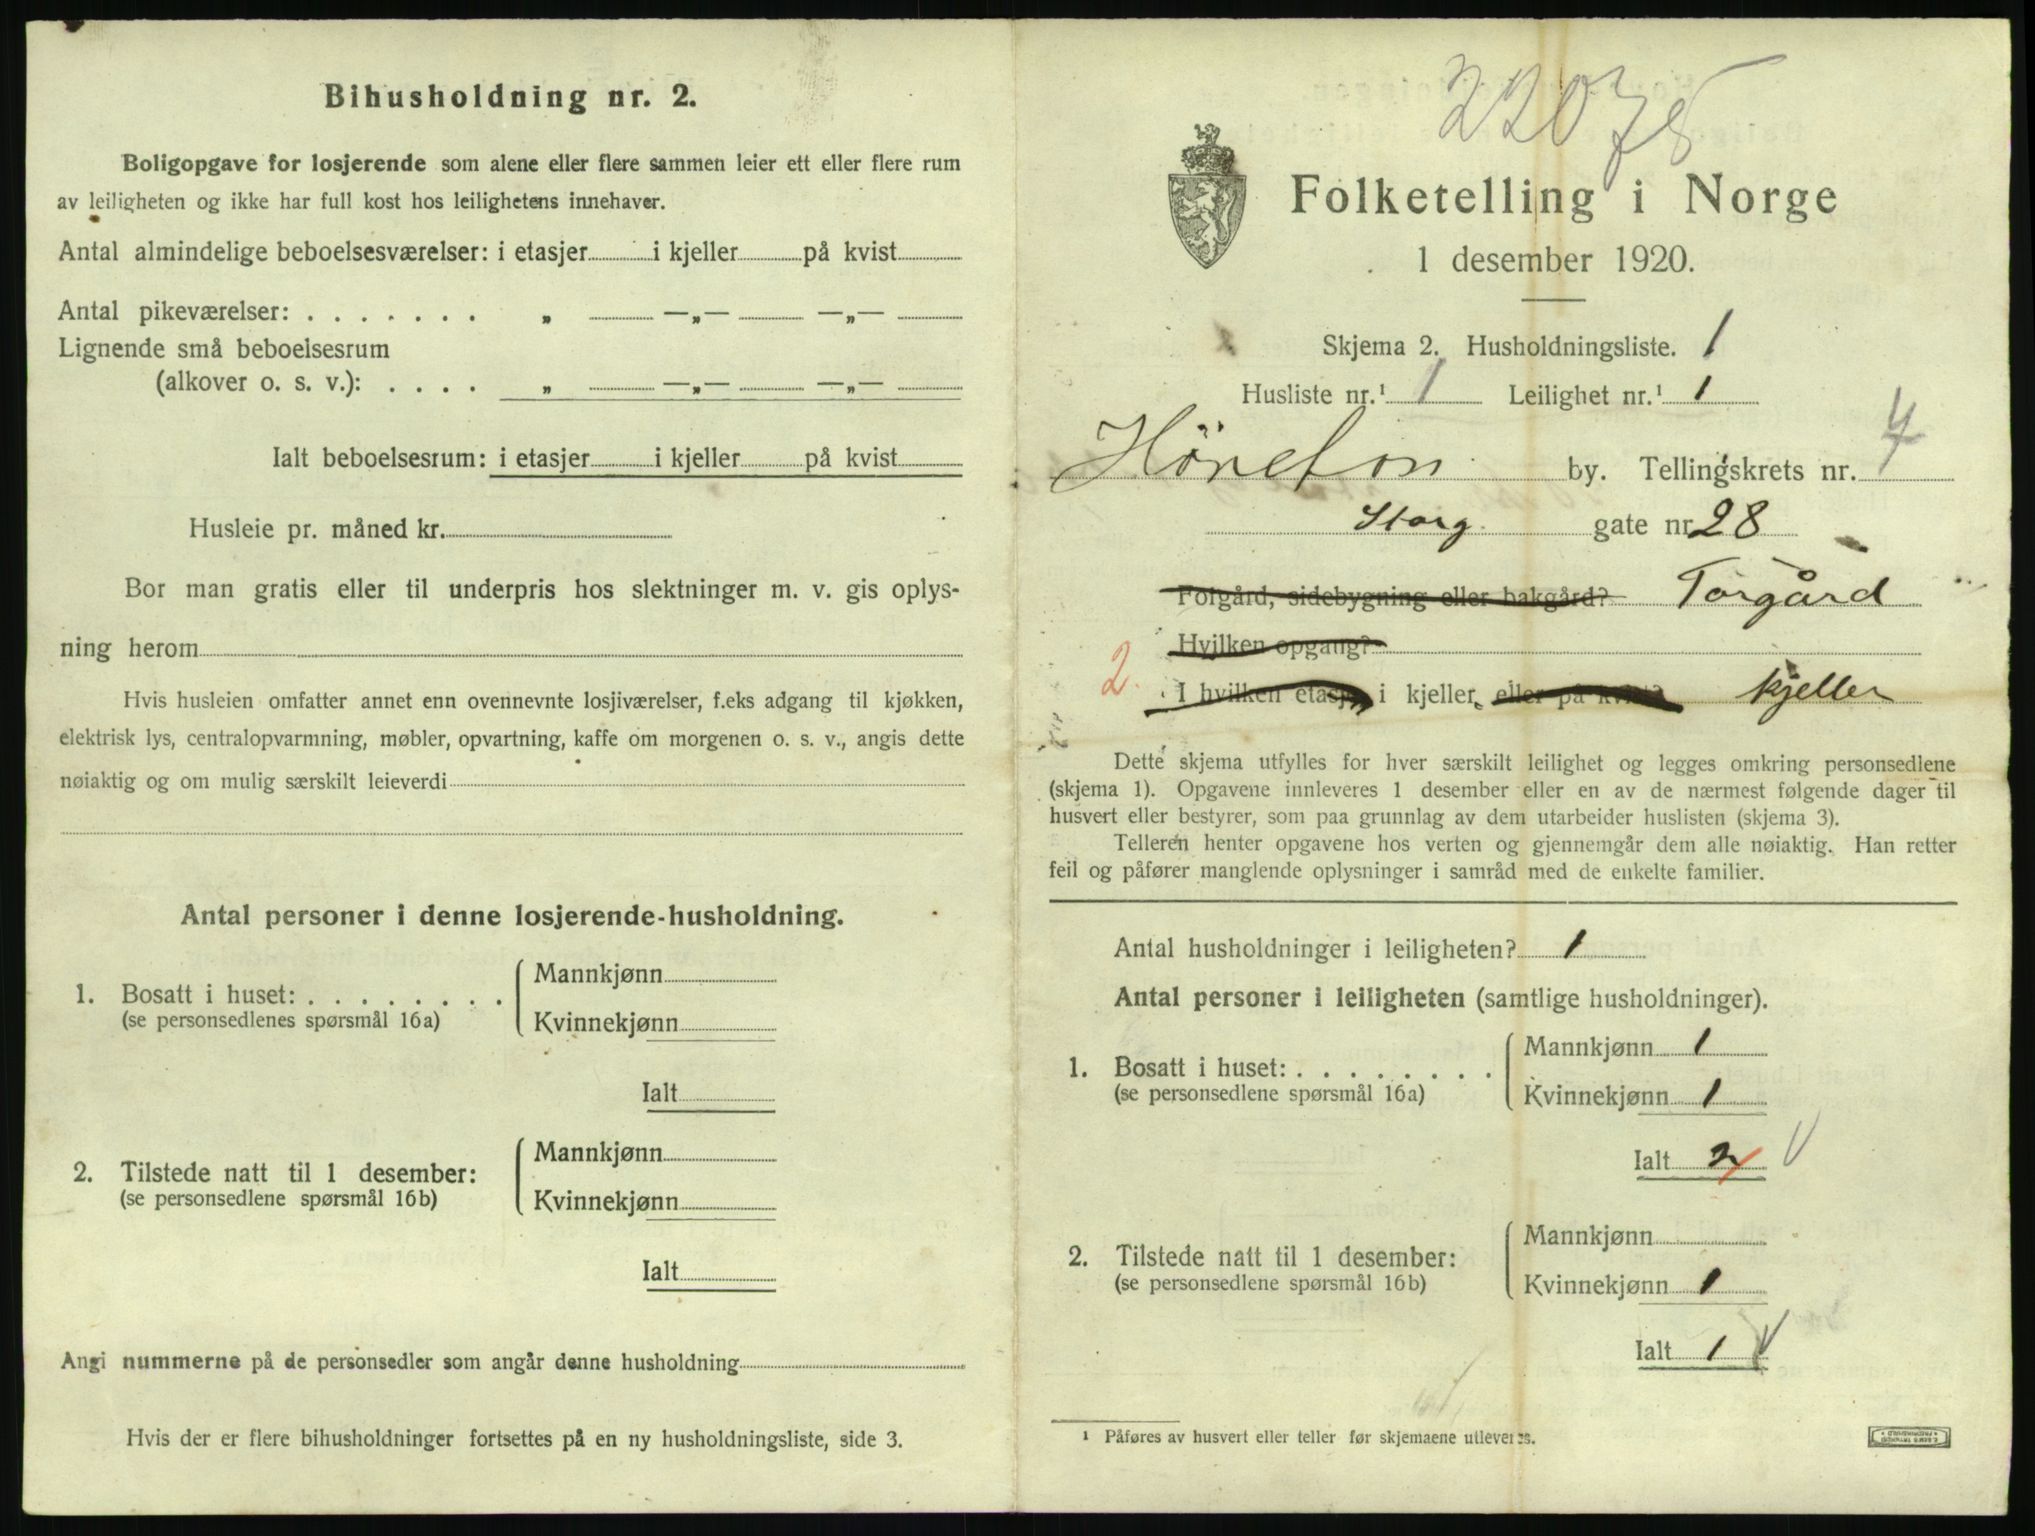 Bihusholdning nr. 2.
Boligopgave for losjerende som alene eller flere sammen leier ett eller flere rum
av leiligheten og ikke har full kost hos leilighetens innehaver.
Antal almindelige beboelsesværelser: i etasjer i kjeller på kvist
Antal pikeværelser: . . . . . . . „ —„— —„—
Lignende små beboelsesrum
(alkover o. s. v.): . . . . „ —„— —„—
Ialt beboelsesrum: i etasjer i kjeller på kvist
Husleie pr. måned kr.
Bor man gratis eller til underpris hos slektninger m. v. gis oplys-
ning herom
Hvis husleien omfatter annet enn ovennevnte losjiværelser, f.eks adgang til kjøkken,
elektrisk lys, centralopvarmning, møbler, opvartning, kaffe om morgenen o. s. v., angis dette
nøiaktig og om mulig særskilt leieverdi
Antal personer i denne losjerende-husholdning.
1. Bosatt i huset: . . . . . . . .
(se personsedlenes spørsmål 16a)
Mannkjønn
Kvinnekjønn
Ialt
2. Tilstede natt til 1 desember:
(se personsedlene spørsmål 16b)
Mannkjønn
Kvinnekjønn
Ialt
Angi nummerne på de personsedler som angår denne husholdning
Hvis der er flere bihusholdninger fortsettes på en ny husholdningsliste, side 3.
22078
Folketelling i Norge
1 desember 1920.
Skjema 2. Husholdningsliste. 1
Husliste nr.¹ 1 Leilighet nr.¹ 1
Hönefos by. Tellingskrets nr. 4
Storg gate nr 28
Forgård, sidebygning eller bakgård? Forgård
Hvilken opgang?
2. I hvilken etasje, i kjeller, eller på kvist? kjeller
Dette skjema utfylles for hver særskilt leilighet og legges omkring personsedlene
(skjema 1). Opgavene innleveres 1 desember eller en av de nærmest følgende dager til
husvert eller bestyrer, som paa grunnlag av dem utarbeider huslisten (skjema 3).
Telleren henter opgavene hos verten og gjennemgår dem alle nøiaktig. Han retter
feil og påfører manglende oplysninger i samråd med de enkelte familier.
Antal husholdninger i leiligheten? 1
Antal personer i leiligheten (samtlige husholdninger).
1. Bosatt i huset: . . . . . . . .
(se personsedlene spørsmål 16a)
Mannkjønn 1
Kvinnekjønn 1
Ialt 2
2. Tilstede natt til 1 desember:
(se personsedlene spørsmål 16b)
Mannkjønn
Kvinnekjønn 1
Ialt 1
¹ Påføres av husvert eller teller før skjemaene utleveres.